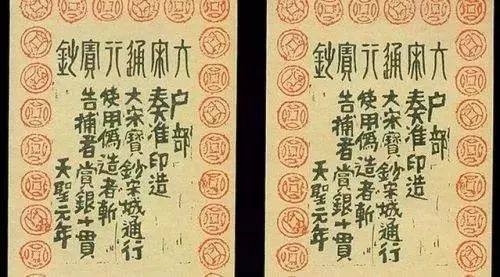 大宋通行寶鈔
户部
奏准印造
大宋寶鈔宋城通行
使用僞造者斬
告捕者賞銀十貫
天聖元年
大宋通行寶鈔
户部
奏准印造
大宋寶鈔宋城通行
使用僞造者斬
告捕者賞銀十貫
天聖元年